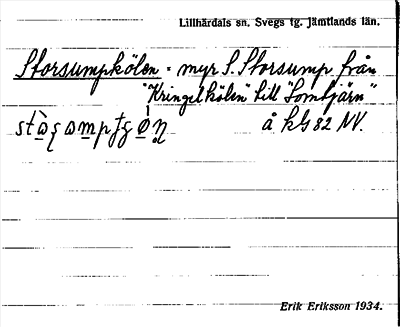 Lillhärdals sn. Svegs tg. Jämtlands län.
Storsumpkölen = myr S. Storsump från
"Kringelkölen" till "Lomtjärn"
å kbl 82 NV.
Erik Eriksson 1934.